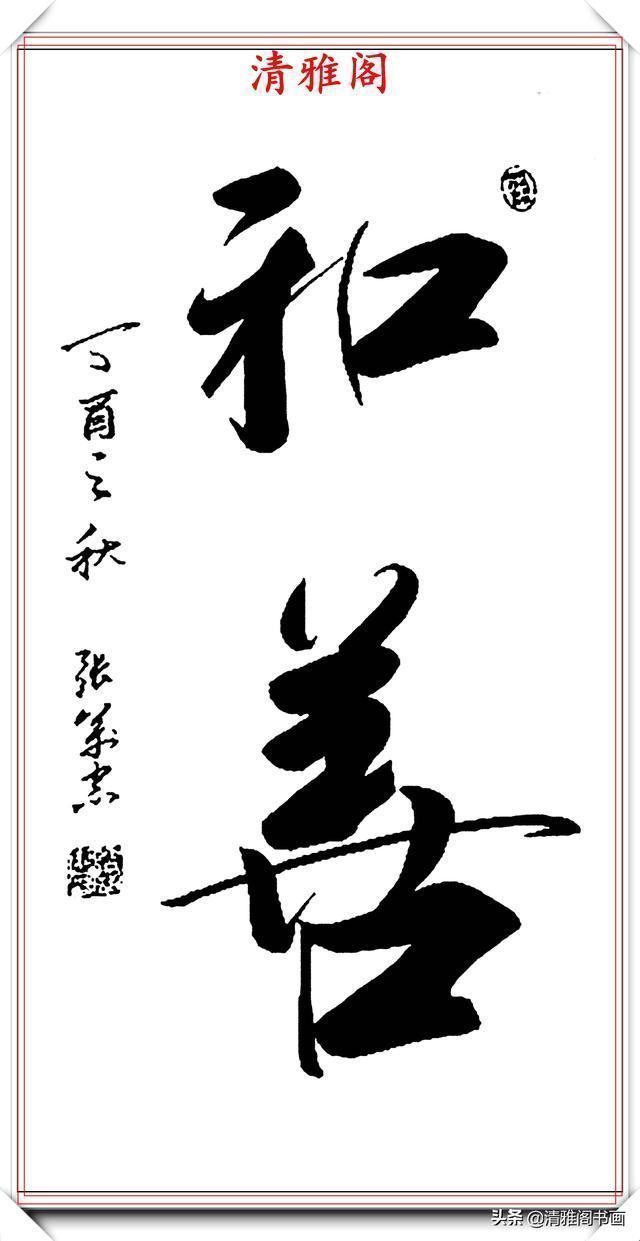 清雅阁
和善
丁酉之秋
张万忠
头条 @清雅阁书画